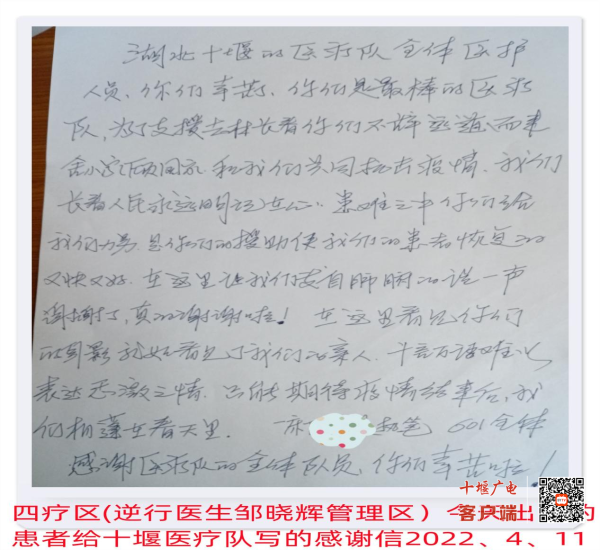 湖北十堰的医疗队全体医护
人员、你们辛苦、你们是最棒的医疗
队,为了支援吉林长春你们不辞远道而来
舍小家顾国家和我们共同抗击疫情、我们
长春人民永远铭记在心。患难之中你们给
我们 是你们的援助使我们的患者恢复的
又快又好.在这里让我们发自肺腑的说一声
谢谢了,真的谢谢啦!在这里看见你们
的身影就如看见了我们的亲人.千言万语难以
表达感激之情.只能期待疫情结束后,我
们相逢在春天里. 601全体
感谢医疗队的全体队员,你们辛苦啦!
十堰广电
客户端
四疗区(逆行医生邹晓辉管理区)今天出 的
患者给十堰医疗队写的感谢信2022、4、11